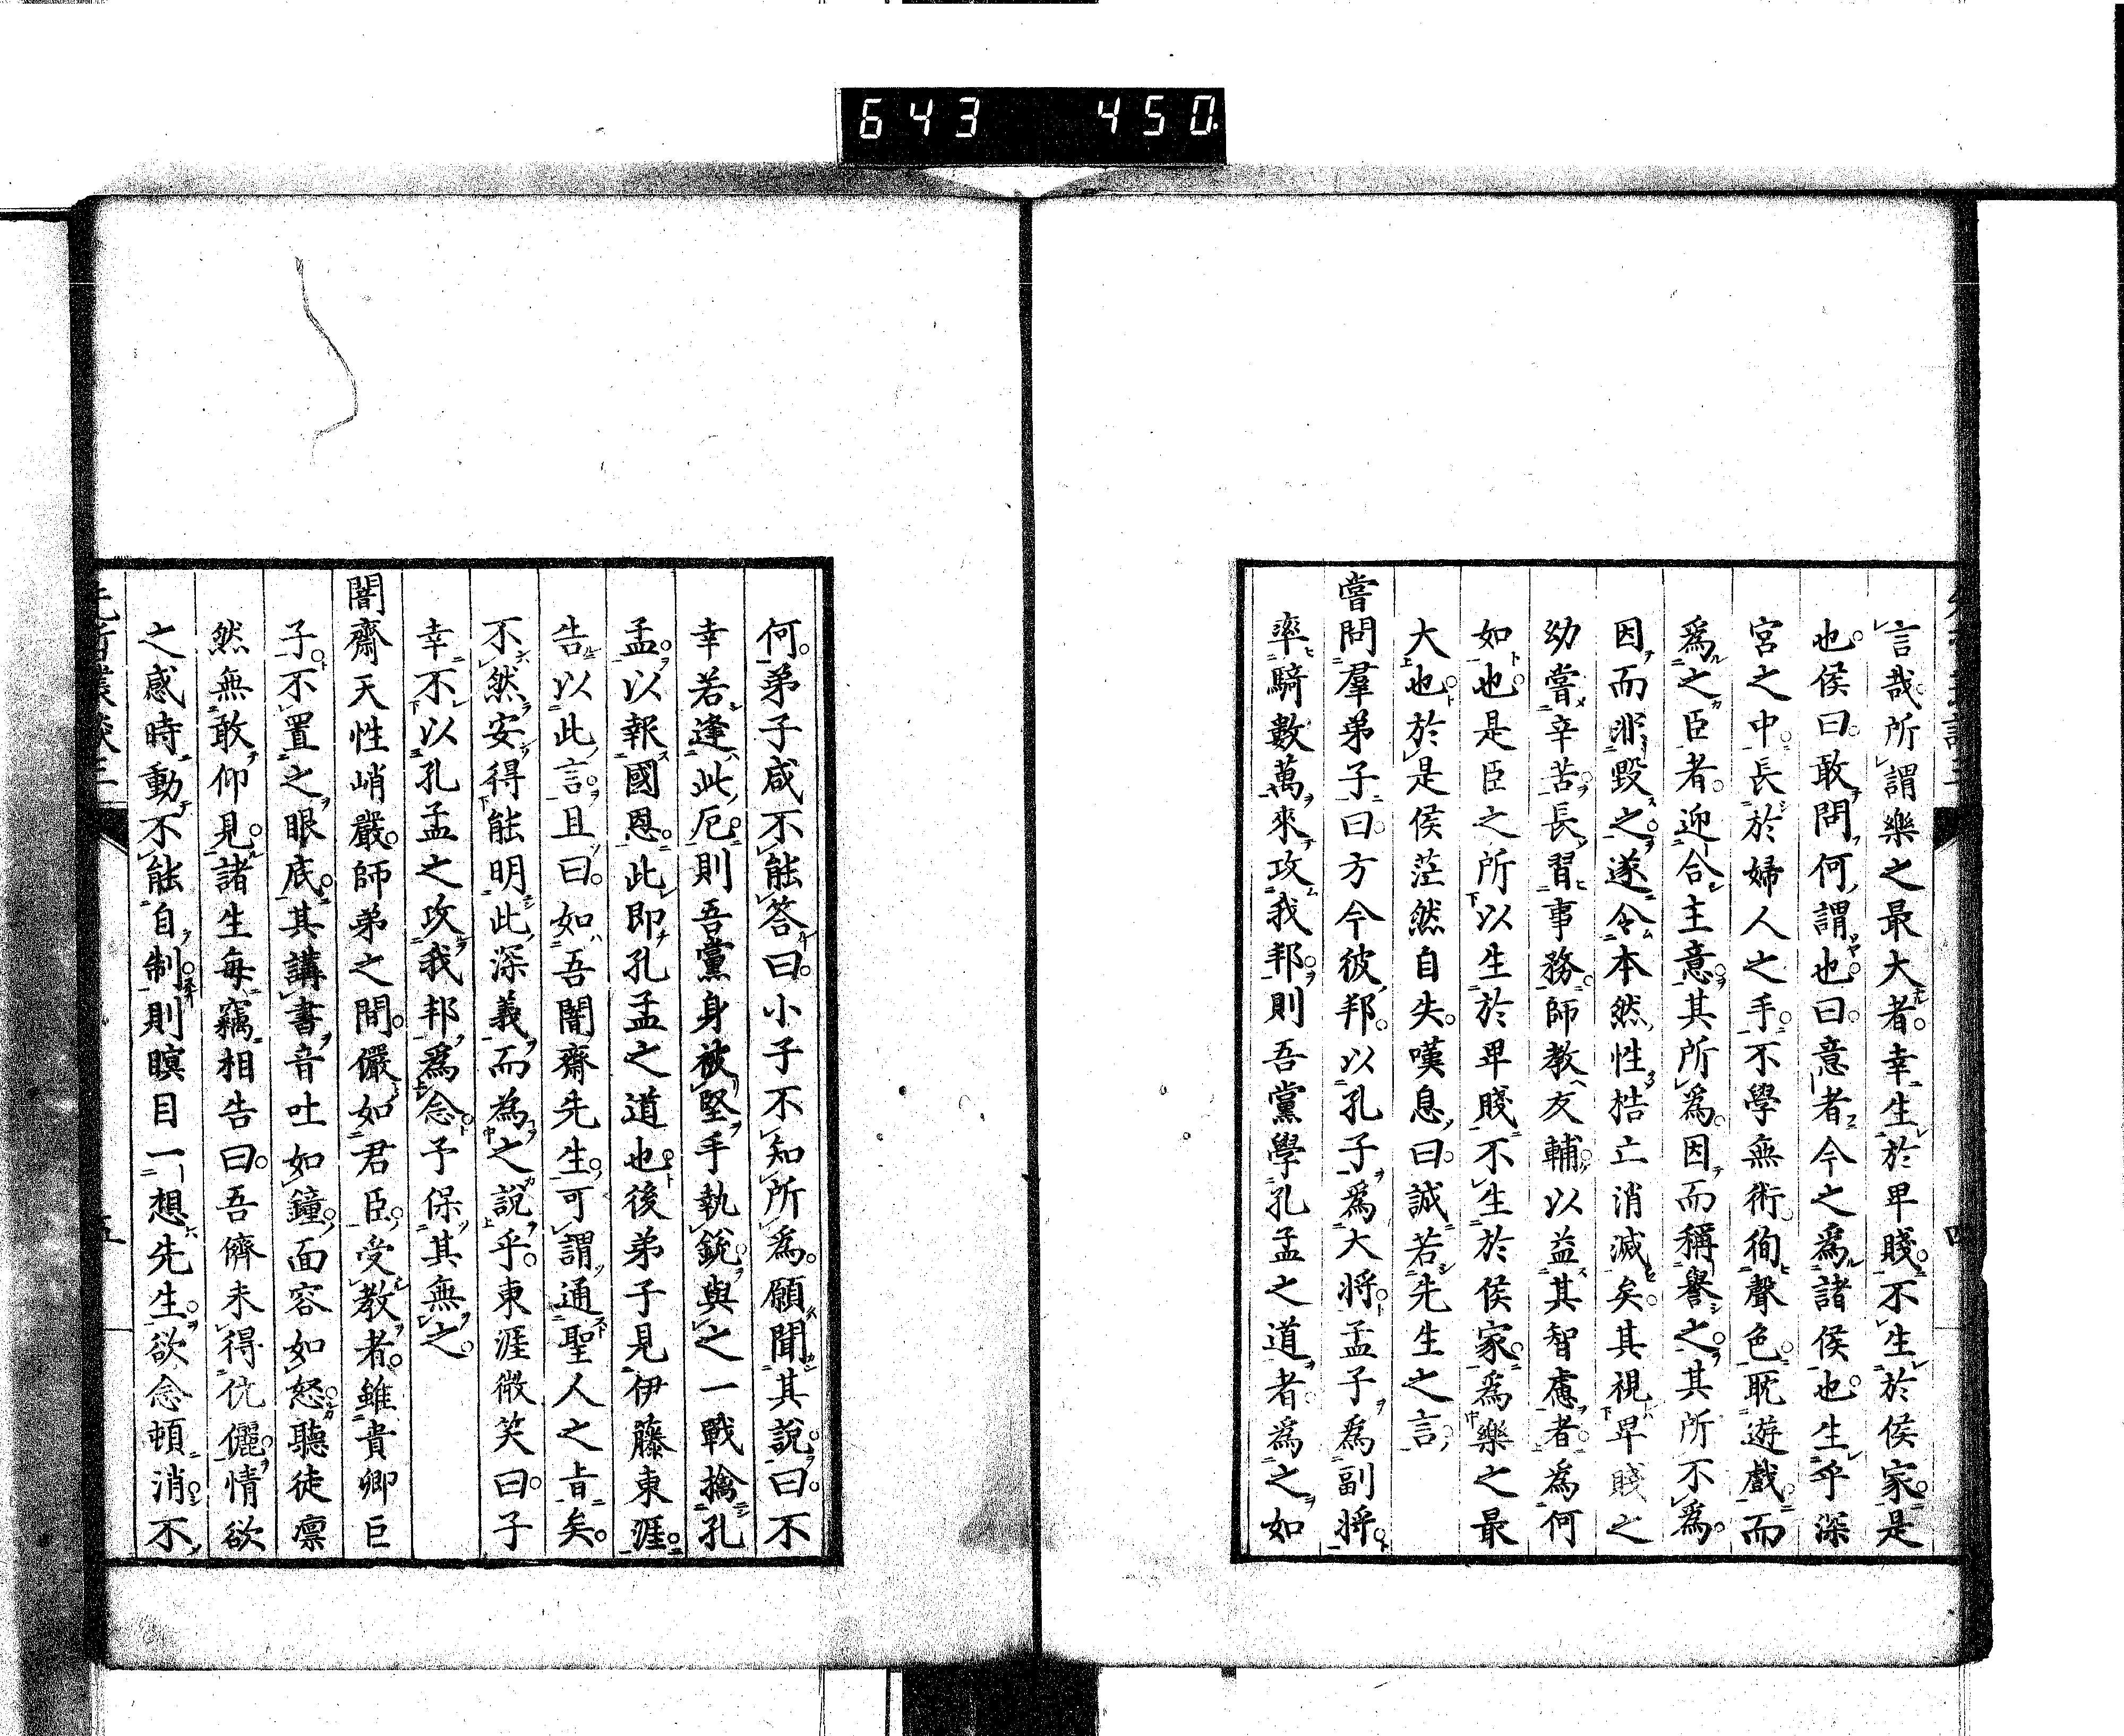 643 450
言哉所謂樂之最大者幸生於卑賤不生於侯家是
也侯曰敢問何謂也曰意者今之爲諸侯也生乎深
宮之中長於婦人之手不學無術徇聲色耽遊戲而
爲之臣者迎合主意其所爲因而稱譽之其所不爲
因而非毀之遂令本然性梏亡消滅矣其視卑賤之
幼嘗辛苦長習事務師教友輔以益其智慮者爲何
如也是臣之所以生於卑賤不生於侯家爲樂之最
大也於是侯茫然自失嘆息曰誠若先生之言
嘗問羣弟子曰方今彼邦以孔子爲大將孟子爲副將
率騎數萬來攻我邦則吾黨學孔孟之道者爲之如
何弟子咸不能答曰小子不知所爲願聞其說曰不
幸若逢此厄則吾黨身被堅手執銳與之一戰擒孔
孟以報國恩此即孔孟之道也後弟子見伊藤東涯
告以此言且曰如吾闇齋先生可謂通聖人之旨矣
不然安得能明此深義而為之說乎東涯微笑曰子
幸不以孔孟之攻我邦爲念予保其無之
闇齋天性峭嚴師弟之間儼如君臣受教者雖貴卿巨
子不置之眼底其講書音吐如鐘面容如怒聽徒凛
然無敢仰見諸生每竊相告曰吾儕未得伉儷情欲
之感時動不能自制則瞑目一想先生欲念頓消不
先哲叢談三
五